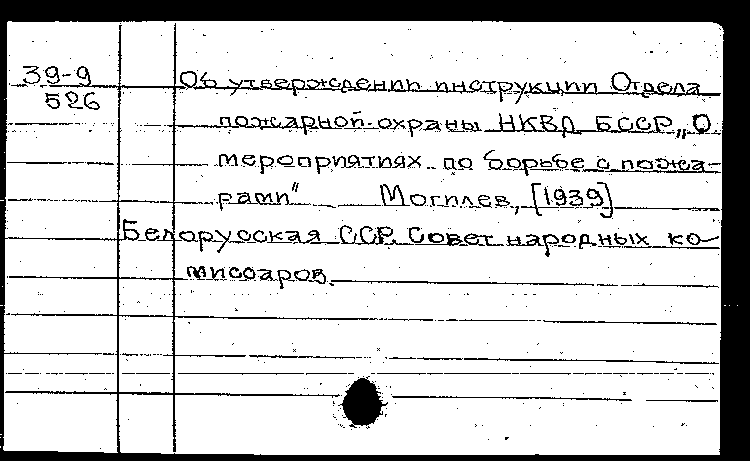 39-9
526
Об утверждении инструкции Отдела
пожарной охраны НКВД БССР „О
мероприятиях по борьбе с пожа-
рами" Могилев, [1939]
Белорусская ССР. Совет народных ко-
миссаров.